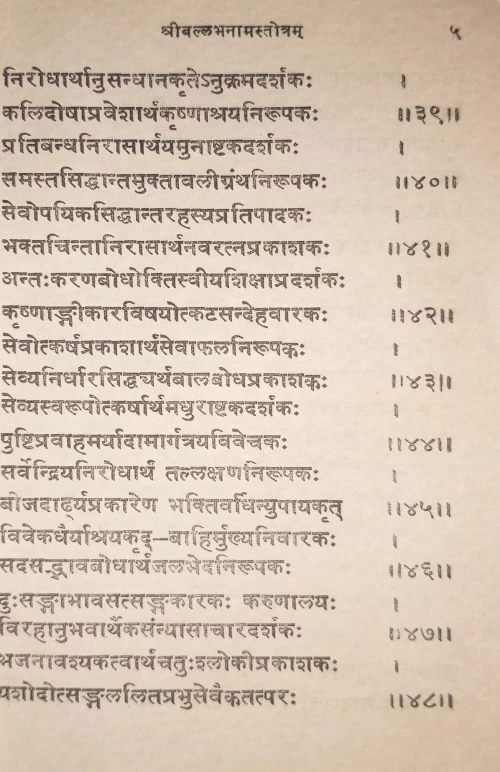 श्रीबल्लभनामस्तोत्रम् ५
निरोधार्थानुसन्धानकृतेऽनुक्रमदर्शकः ।
कलिदोषाप्रवेशार्थकृष्णाश्रयनिरूपकः ॥३९॥
प्रतिबन्धनिरासार्थयमुनाष्टकदर्शकः ।
समस्तसिद्धान्तमुक्तावलीग्रंथनिरूपकः ॥४०॥
सेवोपयिकसिद्धान्तरहस्यप्रतिपादकः ।
भक्तचिन्तानिरासार्थनवरत्नप्रकाशकः ॥४१॥
अन्तःकरणबोधोक्तिस्वीयशिक्षाप्रदर्शकः ।
कृष्णाङ्गीकारविषयोत्कटसन्देहवारकः ॥४२॥
सेवोत्कर्षप्रकाशार्थसेवाफलनिरूपकः ।
सेव्यनिर्धारसिद्ध्यर्थबालबोधप्रकाशकः ॥४३॥
सेव्यस्वरूपोत्कर्षार्थमधुराष्टकदर्शकः ।
पुष्टिप्रवाहमर्यादामार्गत्रयविवेचकः ॥४४॥
सर्वेन्द्रियनिरोधार्थं तल्लक्षणनिरूपकः ।
बीजदार्ढ्यप्रकारेण भक्तिवर्धिन्युपायकृत् ॥४५॥
विवेकधैर्याश्रयकृद्—बाहिर्मुख्यनिवारकः ।
सदसद्भावबोधार्थजलभेदनिरूपकः ॥४६॥
दुःसङ्गाभावसत्सङ्गकारकः करुणालयः ।
विरहानुभवार्थैकसंन्यासाचारदर्शकः ॥४७॥
भजनावश्यकत्वार्थचतुःश्लोकीप्रकाशकः ।
यशोदोत्सङ्गललितप्रभुसेवैकतत्परः ॥४८॥